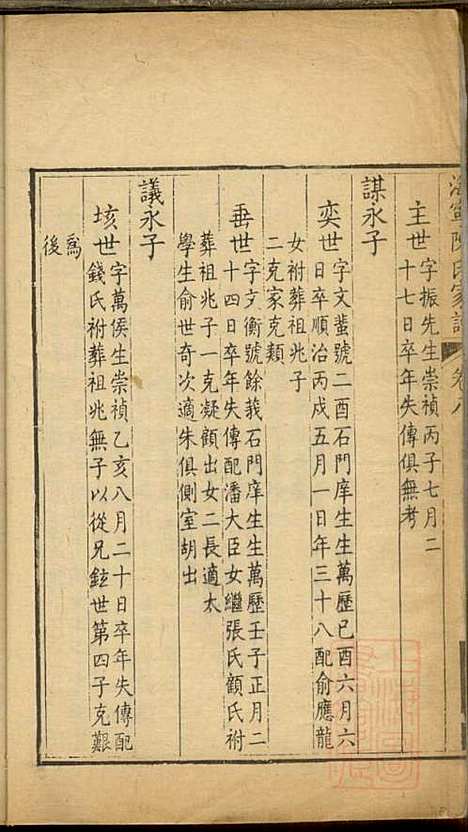 海寧陳氏家譜 卷八
主世 字振先生崇禎丙子七月二
十七日卒年失傳俱無考
謀永子
奕世 字文蜚號二酉石門庠生生萬歷己酉六月六
日卒順治丙戌五月一日年三十八配俞應龍
女祔葬祖兆子
二克家克類
垂世 字文衡號餘莪石門庠生生萬歷壬子正月二
十四日卒年失傳配潘大臣女繼張氏顧氏祔
葬祖兆子一克凝顧出女二長適太
學生俞世奇次適朱俱側室胡出
議永子
垓世 字萬侯生崇禎乙亥八月二十日卒年失傳配
錢氏祔葬祖兆無子以從兄鉉世第四子克艱
爲
後